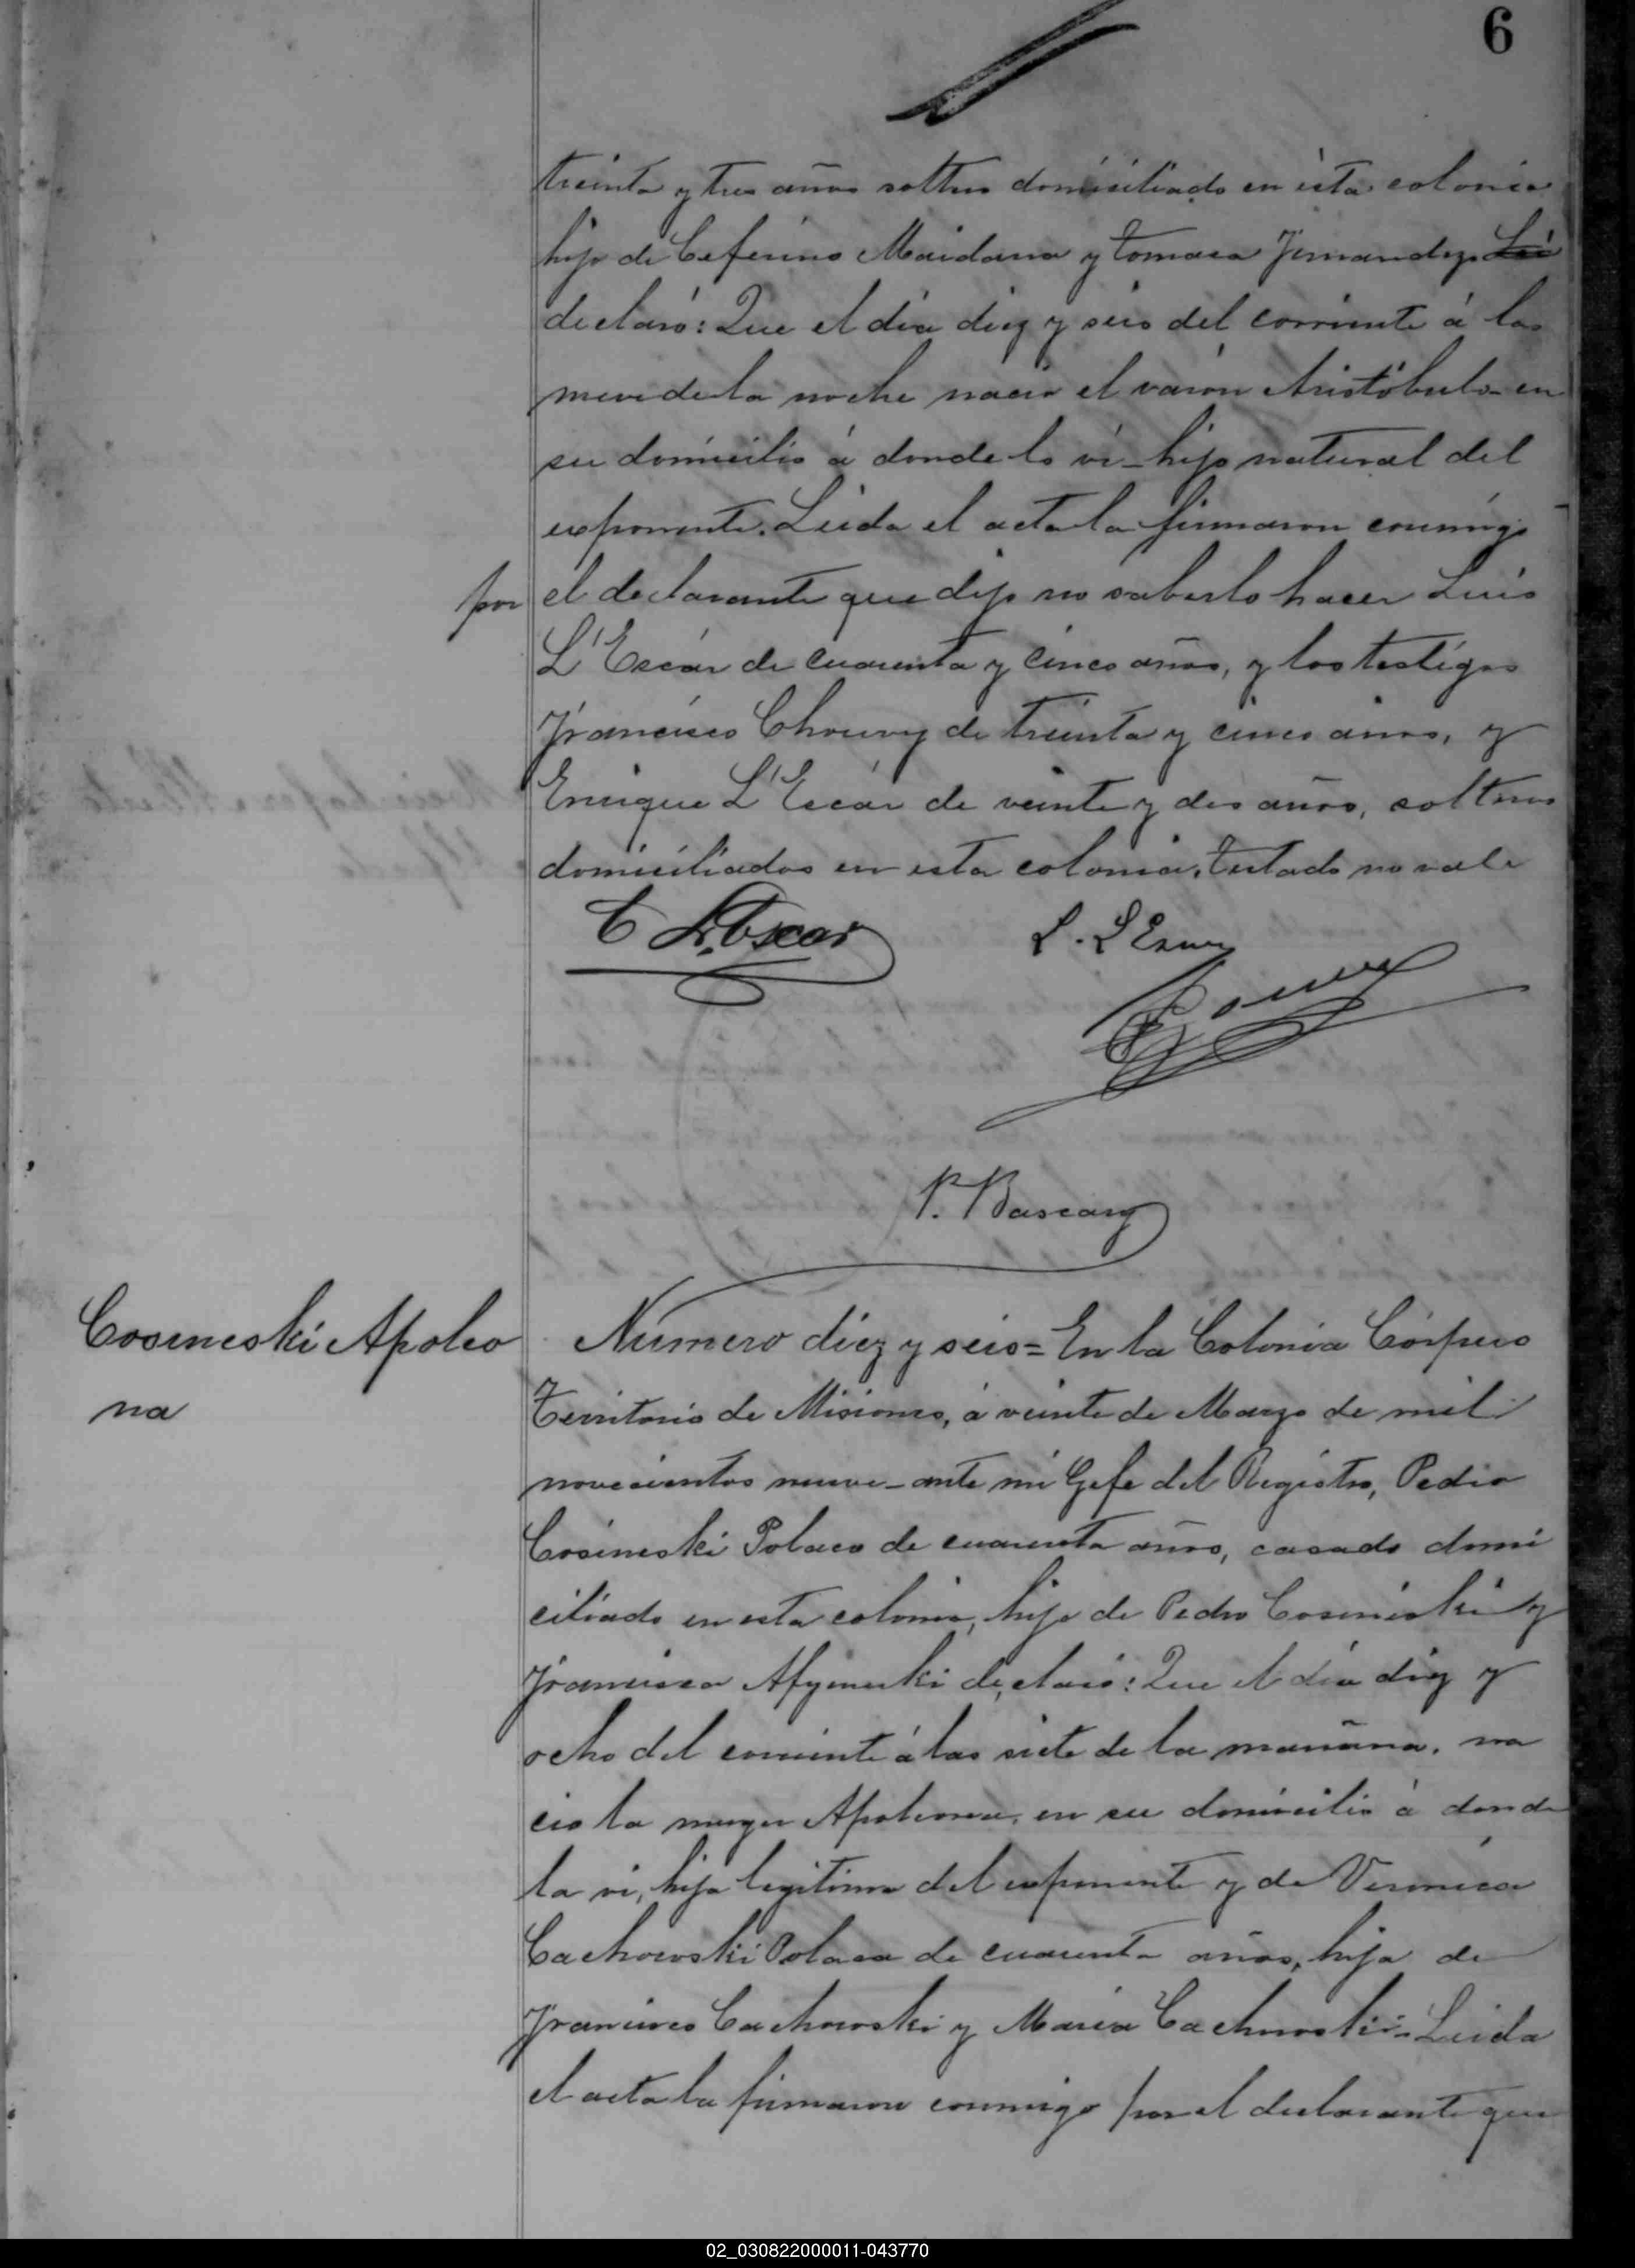 6
treinta y tres años soltero domiciliado en ésta colonia
hijo de Ceferino Maidana y Tomasa Fernandez
declaró: Que el día diez y seis del corriente á las
nueve de la noche nació el varón Aristóbulo en
su domicilio á donde lo ví hijo natural del
exponente. Leida el acta la firmaron conmigo
por el declarante que dijo no saberlo hacer Luis
L'Escár de cuarenta y cinco años, y los testigos
Francisco Chouvy de treinta y cinco años, y
Enrique L'Escár de veinte y dos años, solteros
domiciliados en esta colonia. Testado no vale
L'Escar L. L'Escar
P. Bascary
Cosineski Apoleo
na
Número diez y seis = En la Colonia Córpus
Territorio de Misiones, á veinte de Marzo de mil
novecientos nueve - ante mi Gefe del Registro, Pedro
Cosineski Polaco de cuarenta años, casado domi
ciliado en esta colonia, hijo de Pedro Cosineski y
Francisca declaró: Que el día diez y
ocho del corriente á las siete de la mañana, na
cio la muger Apoleona, en su domicilio á donde
la vi, hija legitima del exponente y de Verónica
Cachowski Polaca de cuarenta años, hija de
Francisco Cachowski y María Cachowski = Leida
el acta la firmaron conmigo por el declarante que
02_030822000011-043770